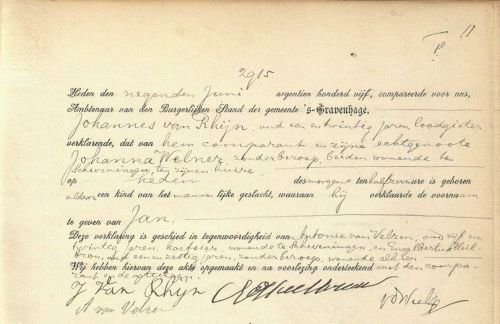 11
2915
Heden den negenden Juni negentien honderd vijf, compareerde voor ons,
Ambtenaar van den Burgerlijken Stand der gemeente 's-Gravenhage,
Johannes van Rhijn, oud een en twintig jaren, loodgieter
verklarende, dat van hem comparant en zijne echtgenoote
Johanna Welner, zonder beroep, beiden wonende te
Scheveningen, ten zijnen huize
op heden des morgens ten half zeven ure is geboren
aldaar een kind van het mannelijke geslacht, waaraan hij verklaarde de voornaam
te geven van Jan.
Deze verklaring is geschied in tegenwoordigheid van Antonie van Velzen, oud vijf en
twintig jaren, koetsier, wonende te Scheveningen, en Engelbertus Heil-
bron, oud een en zestig jaren, zonder beroep, wonende alhier
Wij hebben hiervan deze akte opgemaakt en na voorlezing onderteekend met den compa-
rant en de getuigen.
J van Rhijn
A van Velzen